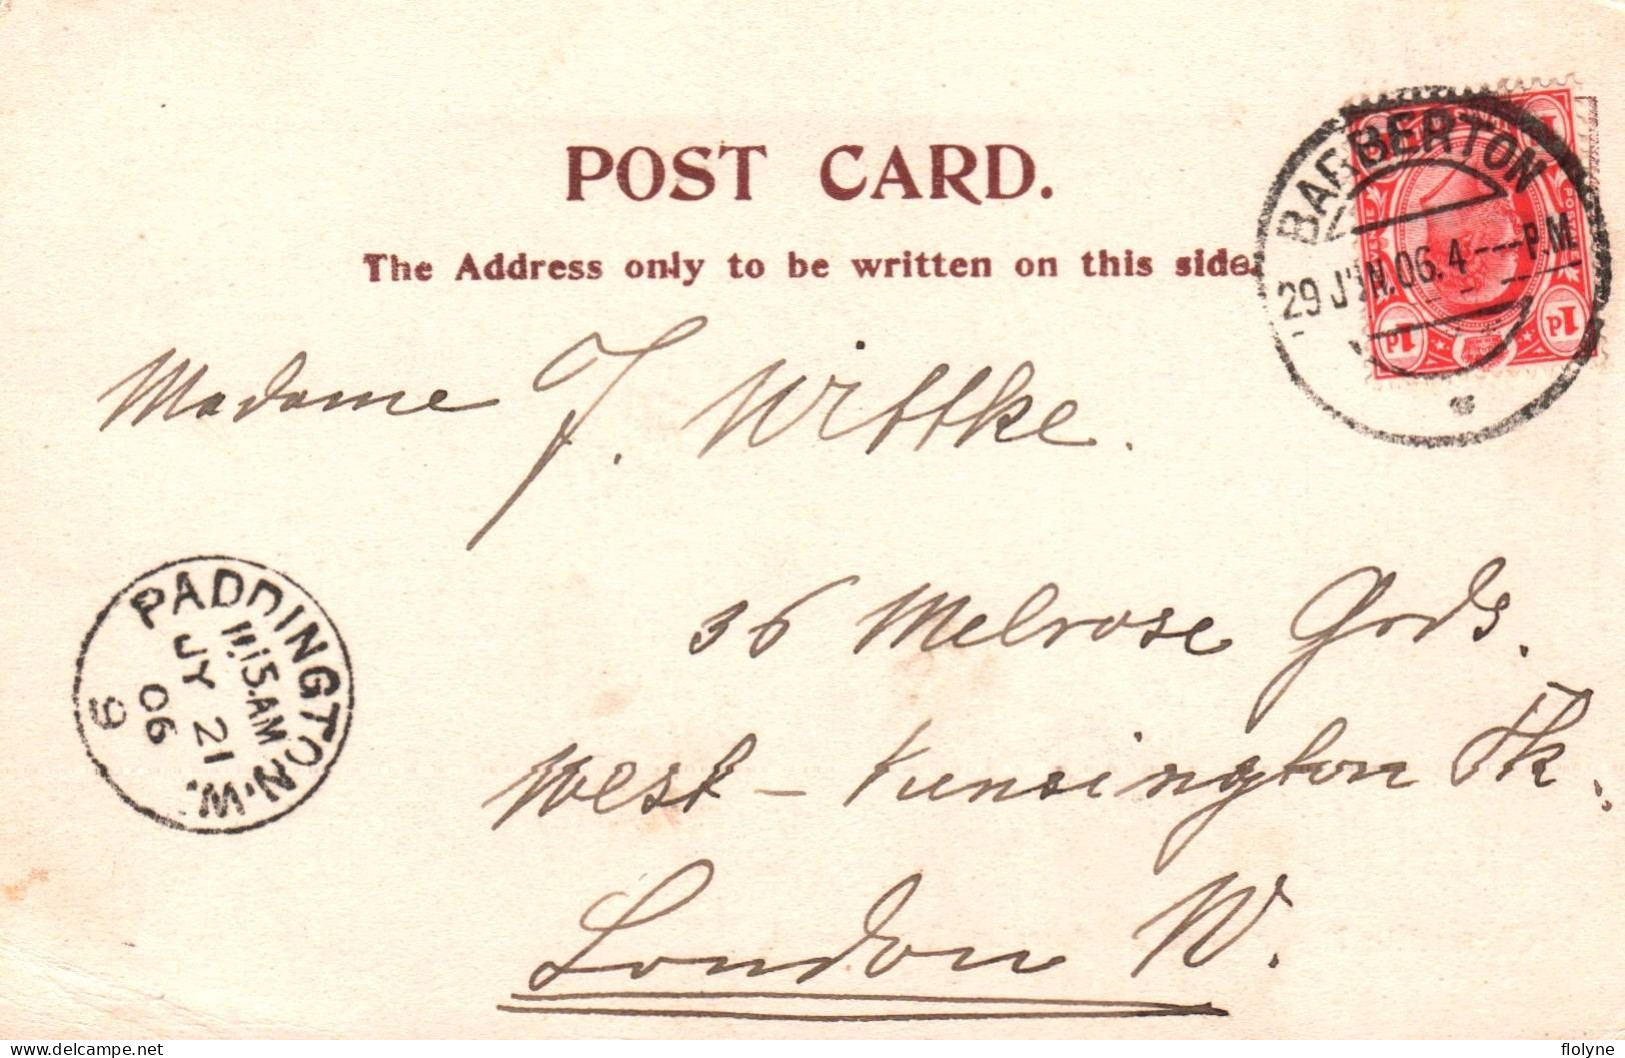 POST CARD.
The Address only to be written on this side.
BARBERTON
29 JUN.06.4---P.M
1d 1d
Madame J. Wittke.
36 Melrose Grds.
West-Kensington Pk.
London W.
PADDINGTON.N.W.
11.15.AM
JY 21
06
9
Delcampe.net
flolyne